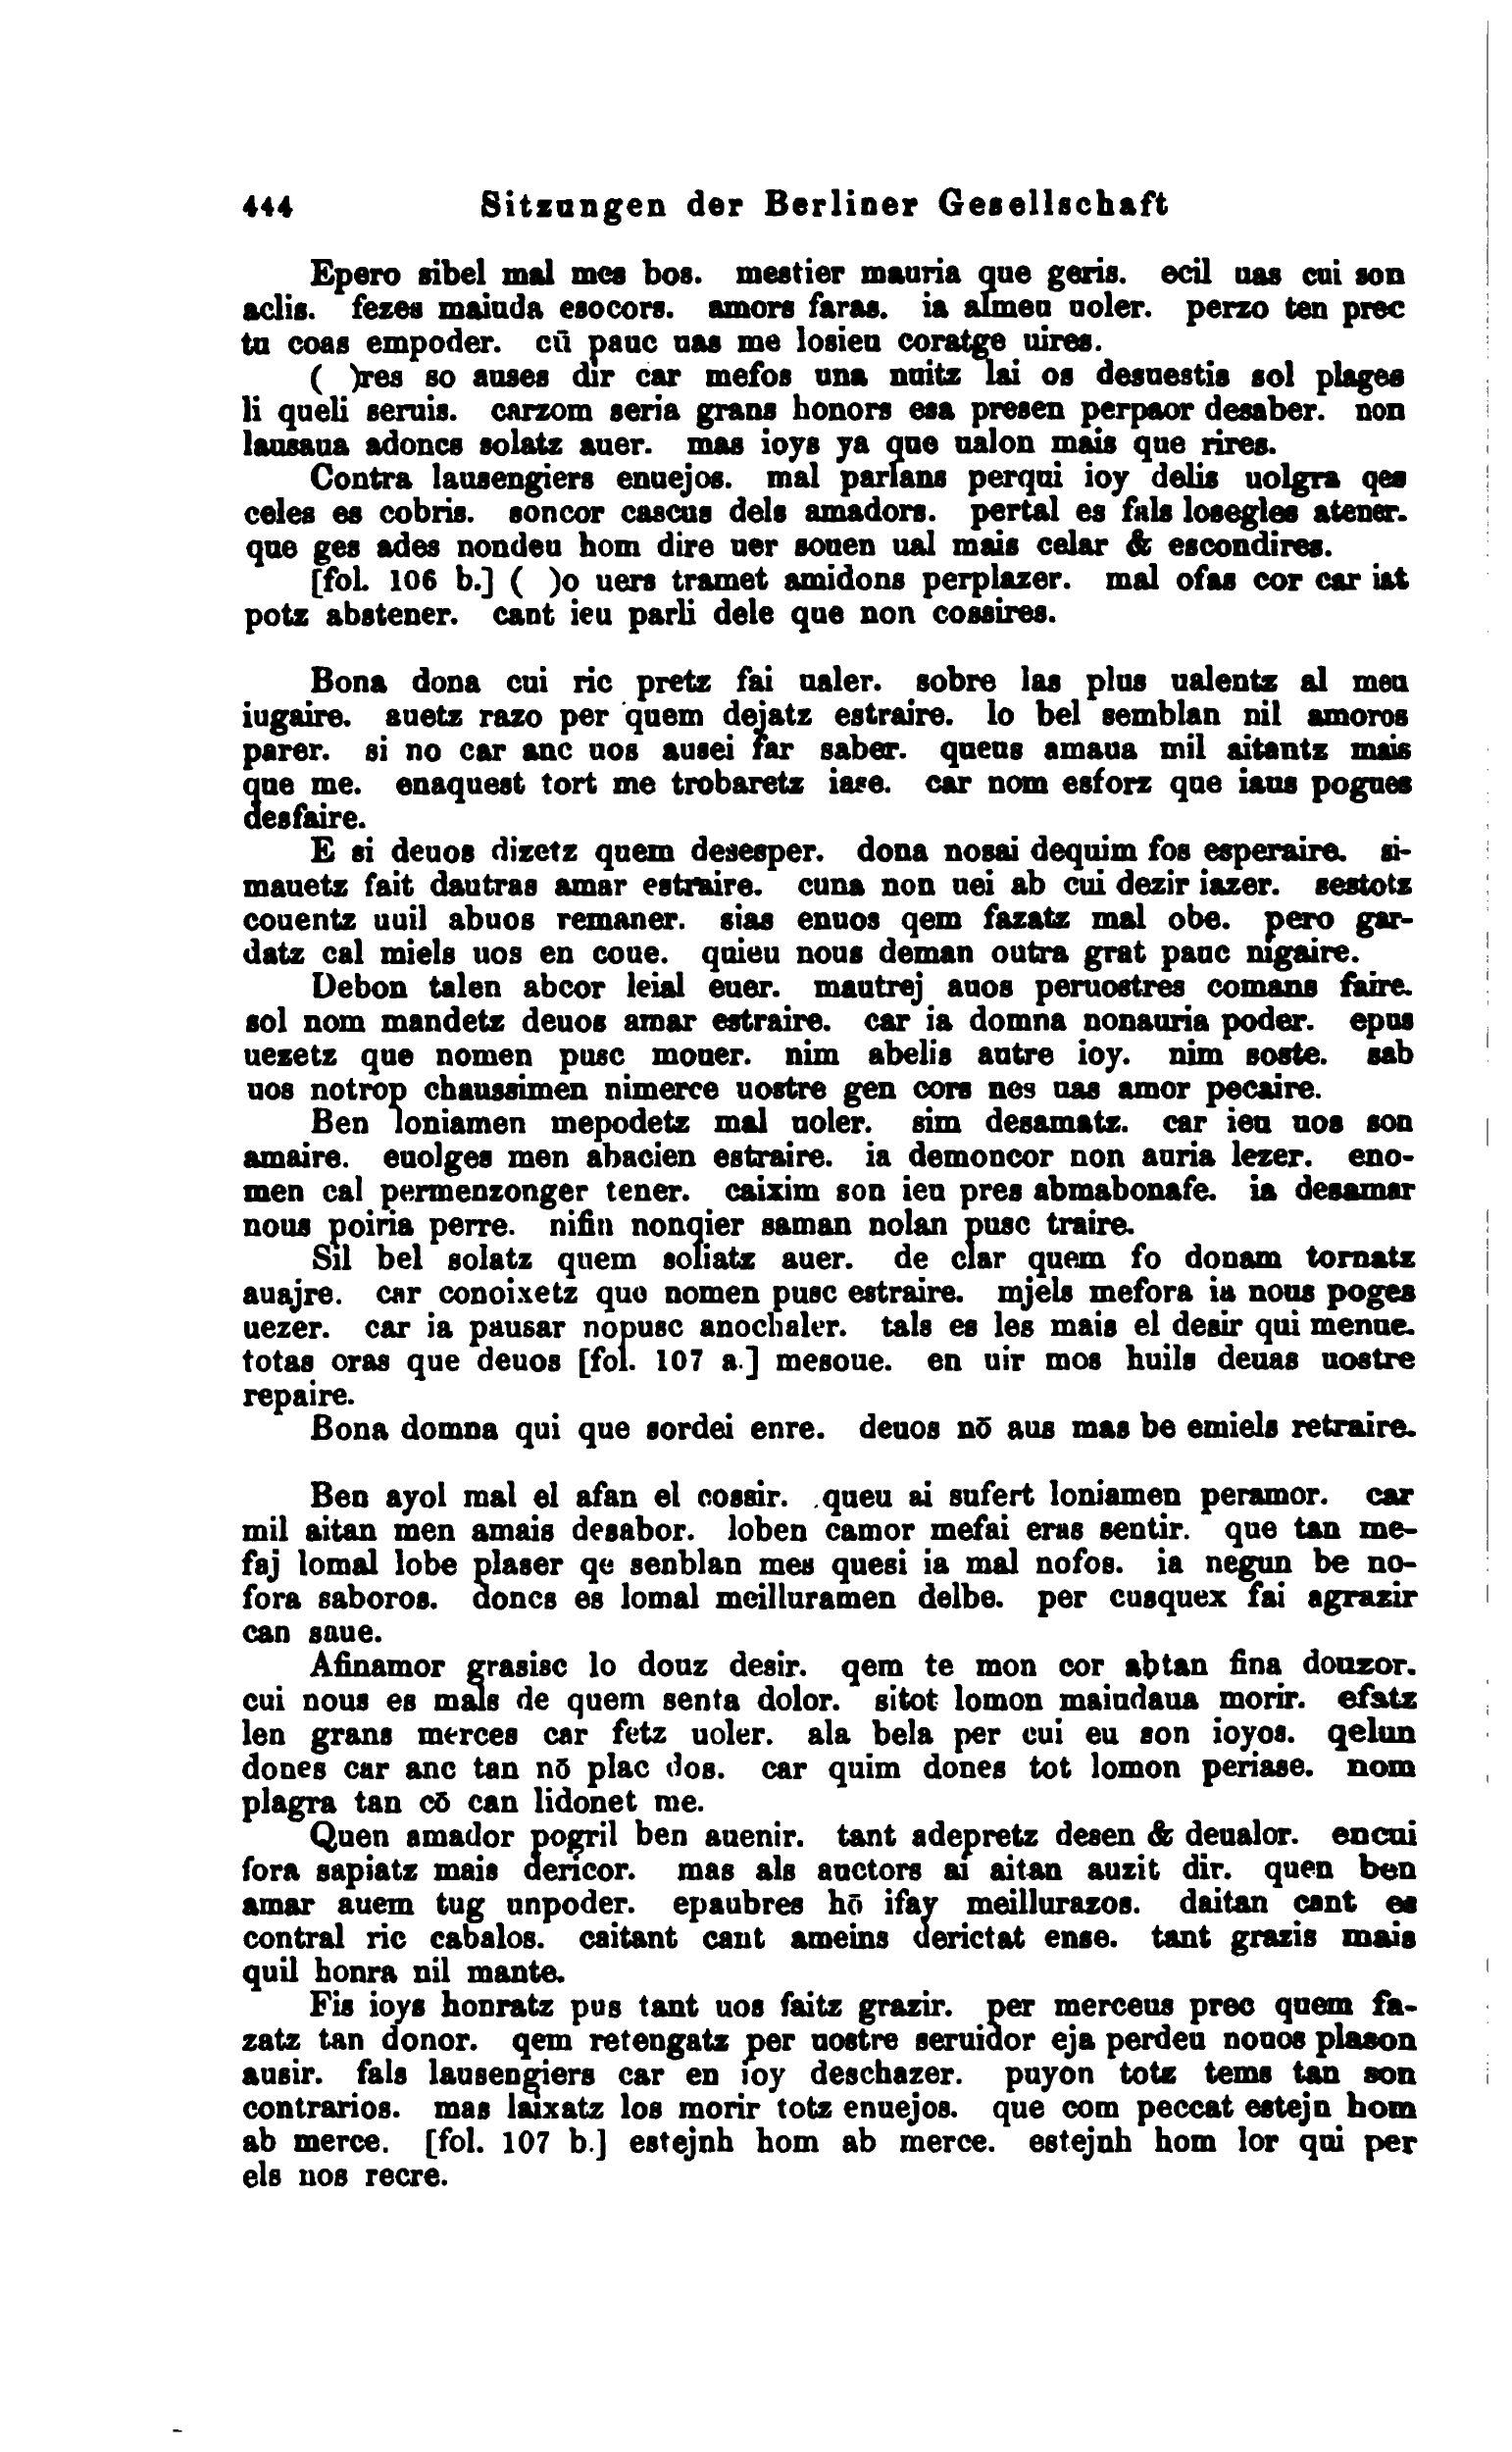 444 Sitzungen der Berliner Gesellschaft
Epero sibel mal mes bos. mestier mauria que geris. ecil uas cui son
aclis. fezes maiuda esocors. amors faras. ia almeu uoler. perzo ten prec
tu coas empoder. cū pauc uas me losieu coratge uires.
( )res so auses dir car mefos una nuitz lai os desuestis sol plages
li queli seruis. carzom seria grans honors esa presen perpaor desaber. non
lausaua adoncs solatz auer. mas ioys ya que ualon mais que rires.
Contra lausengiers enuejos. mal parlans perqui ioy delis uolgra qes
celes es cobris. soncor cascus dels amadors. pertal es fals losegles atener.
que ges ades nondeu hom dire uer souen ual mais celar & escondires.
[fol. 106 b.] ( )o uers tramet amidons perplazer. mal ofas cor car iat
potz abstener. cant ieu parli dele que non cossires.
Bona dona cui ric pretz fai ualer. sobre las plus ualentz al meu
iugaire. auetz razo per quem dejatz estraire. lo bel semblan nil amoros
parer. si no car anc uos ausei far saber. queus amaua mil aitantz mais
que me. enaquest tort me trobaretz iase. car nom esforz que iaus pogues
desfaire.
E si deuos dizetz quem desesper. dona nosai dequim fos esperaire. si-
mauetz fait dautras amar estraire. cuna non uei ab cui dezir iazer. sestotz
couentz uuil abuos remaner. sias enuos qem fazatz mal obe. pero gar-
datz cal miels uos en coue. quieu nous deman outra grat pauc nigaire.
Debon talen abcor leial euer. mautrej auos peruostres comans faire.
sol nom mandetz deuos amar estraire. car ia domna nonauria poder. epus
uezetz que nomen pusc mouer. nim abelis autre ioy. nim soste. sab
uos notrop chaussimen nimerce uostre gen cors nes uas amor pecaire.
Ben loniamen mepodetz mal uoler. sim desamatz. car ieu uos son
amaire. euolges men abacien estraire. ia demoncor non auria lezer. eno-
men cal permenzonger tener. caixim son ieu pres abmabonafe. ia desamar
nous poiria perre. nifin nonqier saman nolan pusc traire.
Sil bel solatz quem soliatz auer. de clar quem fo donam tornatz
auajre. car conoixetz quo nomen pusc estraire. mjels mefora ia nous poges
uezer. car ia pausar nopusc anochaler. tals es les mais el desir qui menue.
totas oras que deuos [fol. 107 a.] mesoue. en uir mos huils deuas uostre
repaire.
Bona domna qui que sordei enre. deuos nō aus mas be emiels retraire.
Ben ayol mal el afan el cossir. queu ai sufert loniamen peramor. car
mil aitan men amais desabor. loben camor mefai eras sentir. que tan me-
faj lomal lobe plaser qe senblan mes quesi ia mal nofos. ia negun be no-
fora saboros. doncs es lomal meilluramen delbe. per cusquex fai agrazir
can saue.
Afinamor grasisc lo douz desir. qem te mon cor abtan fina douzor.
cui nous es mals de quem senta dolor. sitot lomon maiudaua morir. efatz
len grans merces car fetz uoler. ala bela per cui eu son ioyos. qelun
dones car anc tan nō plac dos. car quim dones tot lomon periase. nom
plagra tan cō can lidonet me.
Quen amador pogril ben auenir. tant adepretz desen & deualor. encui
fora sapiatz mais dericor. mas als auctors ai aitan auzit dir. quen ben
amar auem tug unpoder. epaubres hō ifay meillurazos. daitan cant es
contral ric cabalos. caitant cant ameins derictat ense. tant grazis mais
quil honra nil mante.
Fis ioys honratz pus tant uos faitz grazir. per merceus prec quem fa-
zatz tan donor. qem retengatz per uostre seruidor eja perdeu nouos plason
ausir. fals lausengiers car en ioy deschazer. puyon totz tems tan son
contrarios. mas laixatz los morir totz enuejos. que com peccat estejn hom
ab merce. [fol. 107 b.] estejnh hom ab merce. estejnh hom lor qui per
els nos recre.